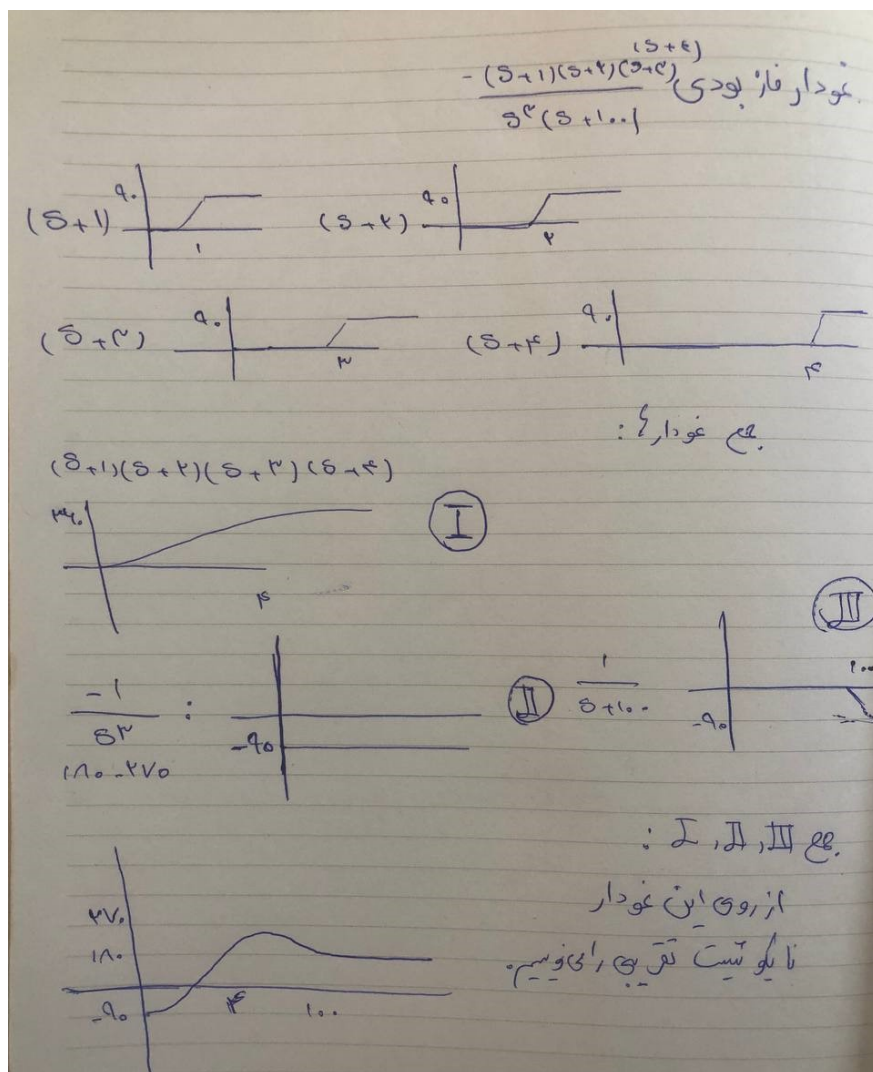 نمودار فاز بودی -(S+1)(S+۲)(S+۳)(S+۴)
S^۳(S+۱۰۰)
(S+1) ۹۰ ۱
(S+۲) ۹۰ ۲
(S+۳) ۹۰ ۳
(S+۴) ۹۰ ۴
جمع نمودارها:
(S+1)(S+۲)(S+۳)(S+۴)
۳۶۰ ۴ I
-1/S^۳ : -۹۰ II
۱۸۰-۲۷۰
1/S+۱۰۰ -۹۰ ۱۰۰ III
جمع I, II, III :
از روی این نمودار
نایکوئیست تقریبی را می‌نویسیم.
۲۷۰
۱۸۰
-۹۰ ۴ ۱۰۰